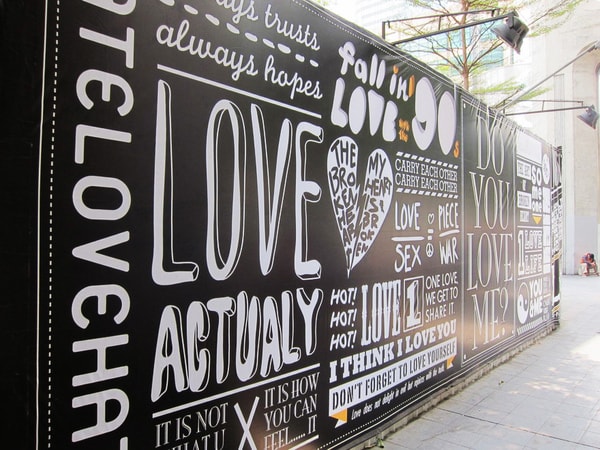 TELOVEHA
always trusts
always hopes
LOVE
ACTUALY
IT IS NOT
X
IT IS HOW
YOU CAN
FEEL...... IT
fall in
LOVE
90s
THE
MY
HEART
IS
CARRY EACH OTHER
CARRY EACH OTHER
LOVE
SEX
PIECE
WAR
HOT!
HOT!
HOT!
LOVE 1
ONE LOVE
WE GET TO
SHARE IT.
I THINK I LOVE YOU
DON'T FORGET TO LOVE YOURSELF
Love does not delight in evil but rejoices with the truth.
DO
YOU
LOVE
ME?
SO
1 LOVE
1 LIFE
YOU